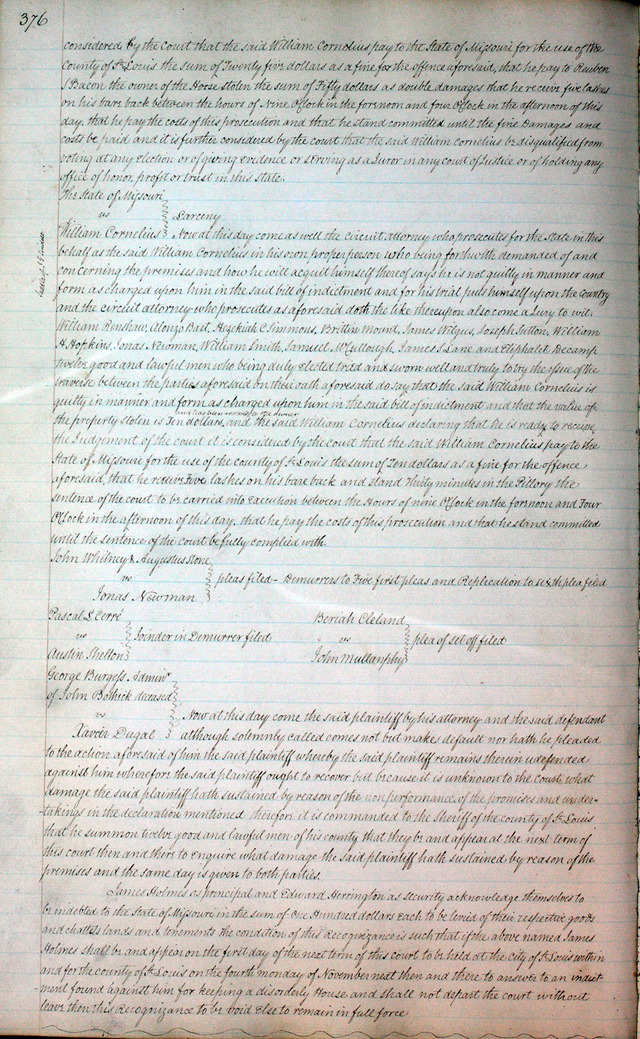 376
considered by the Court that the said William Cornelius pay to the State of Missouri for the use of the
County of St Louis the sum of Twenty five dollars as a fine for the offence aforesaid, that he pay to Reuben
S Bacon the owner of the Horse stolen the sum of Fifty dollars as double damages that he receive five lashes
on his bare back between the hours of Nine OClock in the forenoon and four OClock in the afternoon of this
day, that he pay the costs of this prosecution and that he stand committed until the fine Damages and
costs be paid and it is further considered by the court that the said William Cornelius be disqualified from
voting at any election or of giving evidence or serving as a Juror in any court of Justice or of holding any
office of honor, profit or trust in this state.
The State of Missouri
vs
Larceny
William Cornelius Now at this day come as well the Circuit attorney who prosecutes for the State in this
behalf as the said William Cornelius in his own proper person who being forthwith demanded of and
concerning the premises and how he will acquit himself thereof says he is not guilty in manner and
form as charged upon him in the said bill of indictment and for his trial puts himself upon the Country
and the circuit attorney who prosecutes as aforesaid doth the like thereupon also come a Jury to wit,
William Renshaw, Alonzo Bail, Hezekiah C Simmons, Brittin Mound, James Wilgus, Joseph Sutton, William
H. Hopkins, Jonas Newman, William Smith, Samuel McCullough, James S Lane and Eliphalet Decamp
twelve good and lawful men who being duly elected tried and sworn well and truly to try the issue of the
traverse between the parties aforesaid on their oath aforesaid do say that the said William Cornelius is
guilty in manner and form as charged upon him in the said bill of indictment and that the value of
and has been restored to the owner
the property stolen is Ten dollars, and the said William Cornelius declaring that he is ready to receive
the Judgement of the court it is considered by the court that the said William Cornelius pay to the
State of Missouri for the use of the county of St Louis the sum of Ten dollars as a fine for the offence
aforesaid, that he receive Five lashes on his bare back and stand thirty minutes in the Pillory the
sentence of the court to be carried into Execution between the Hours of nine OClock in the forenoon and Four
OClock in the afternoon of this day, that he pay the costs of this prosecution and that he stand committed
until the sentence of the court be fully complied with.
John Whitney & Augustus Stone
vs
pleas filed - Demurrers to Five first pleas and Replication to sixth plea filed
Jonas Newman
Pascal L Cerré
vs
Joinder in Demurrer filed
Austin Shelton
Beriah Cleland
vs
plea of set off filed
John Mullanphy
George Burgess Adminr
of John Bothick deceased
vs
Now at this day come the said plaintiff by his attorney and the said defendant
Xavier Dugal although solemnly called comes not but makes default nor hath he pleaded
to the action aforesaid of him the said plaintiff whereby the said plaintiff remains therein undefended
against him wherefore the said plaintiff ought to recover but because it is unknown to the Court what
damage the said plaintiff hath sustained by reason of the nonperformance of the promises and under-
-takings in the declaration mentioned therefore it is commanded to the Sheriff of the county of St Louis
that he summon twelve good and lawful men of his county that they be and appear at the next term of
this court then and there to enquire what damage the said plaintiff hath sustained by reason of the
premises and the same day is given to both parties.
James Holmes as principal and Edward Herrington as security acknowledge themselves to
be indebted to the State of Missouri in the sum of One Hundred dollars each to be levied of their respective goods
and chattels lands and tenements the condition of this Recognizance is such that if the above named James
Holmes shall be and appear on the first day of the next term of this court to be held at the City of St Louis within
and for the county of St Louis on the fourth monday of November next then and there to answer to an indict
ment found against him for keeping a disorderly House and shall not depart the court without
leave then this Recognizance to be void Else to remain in full force